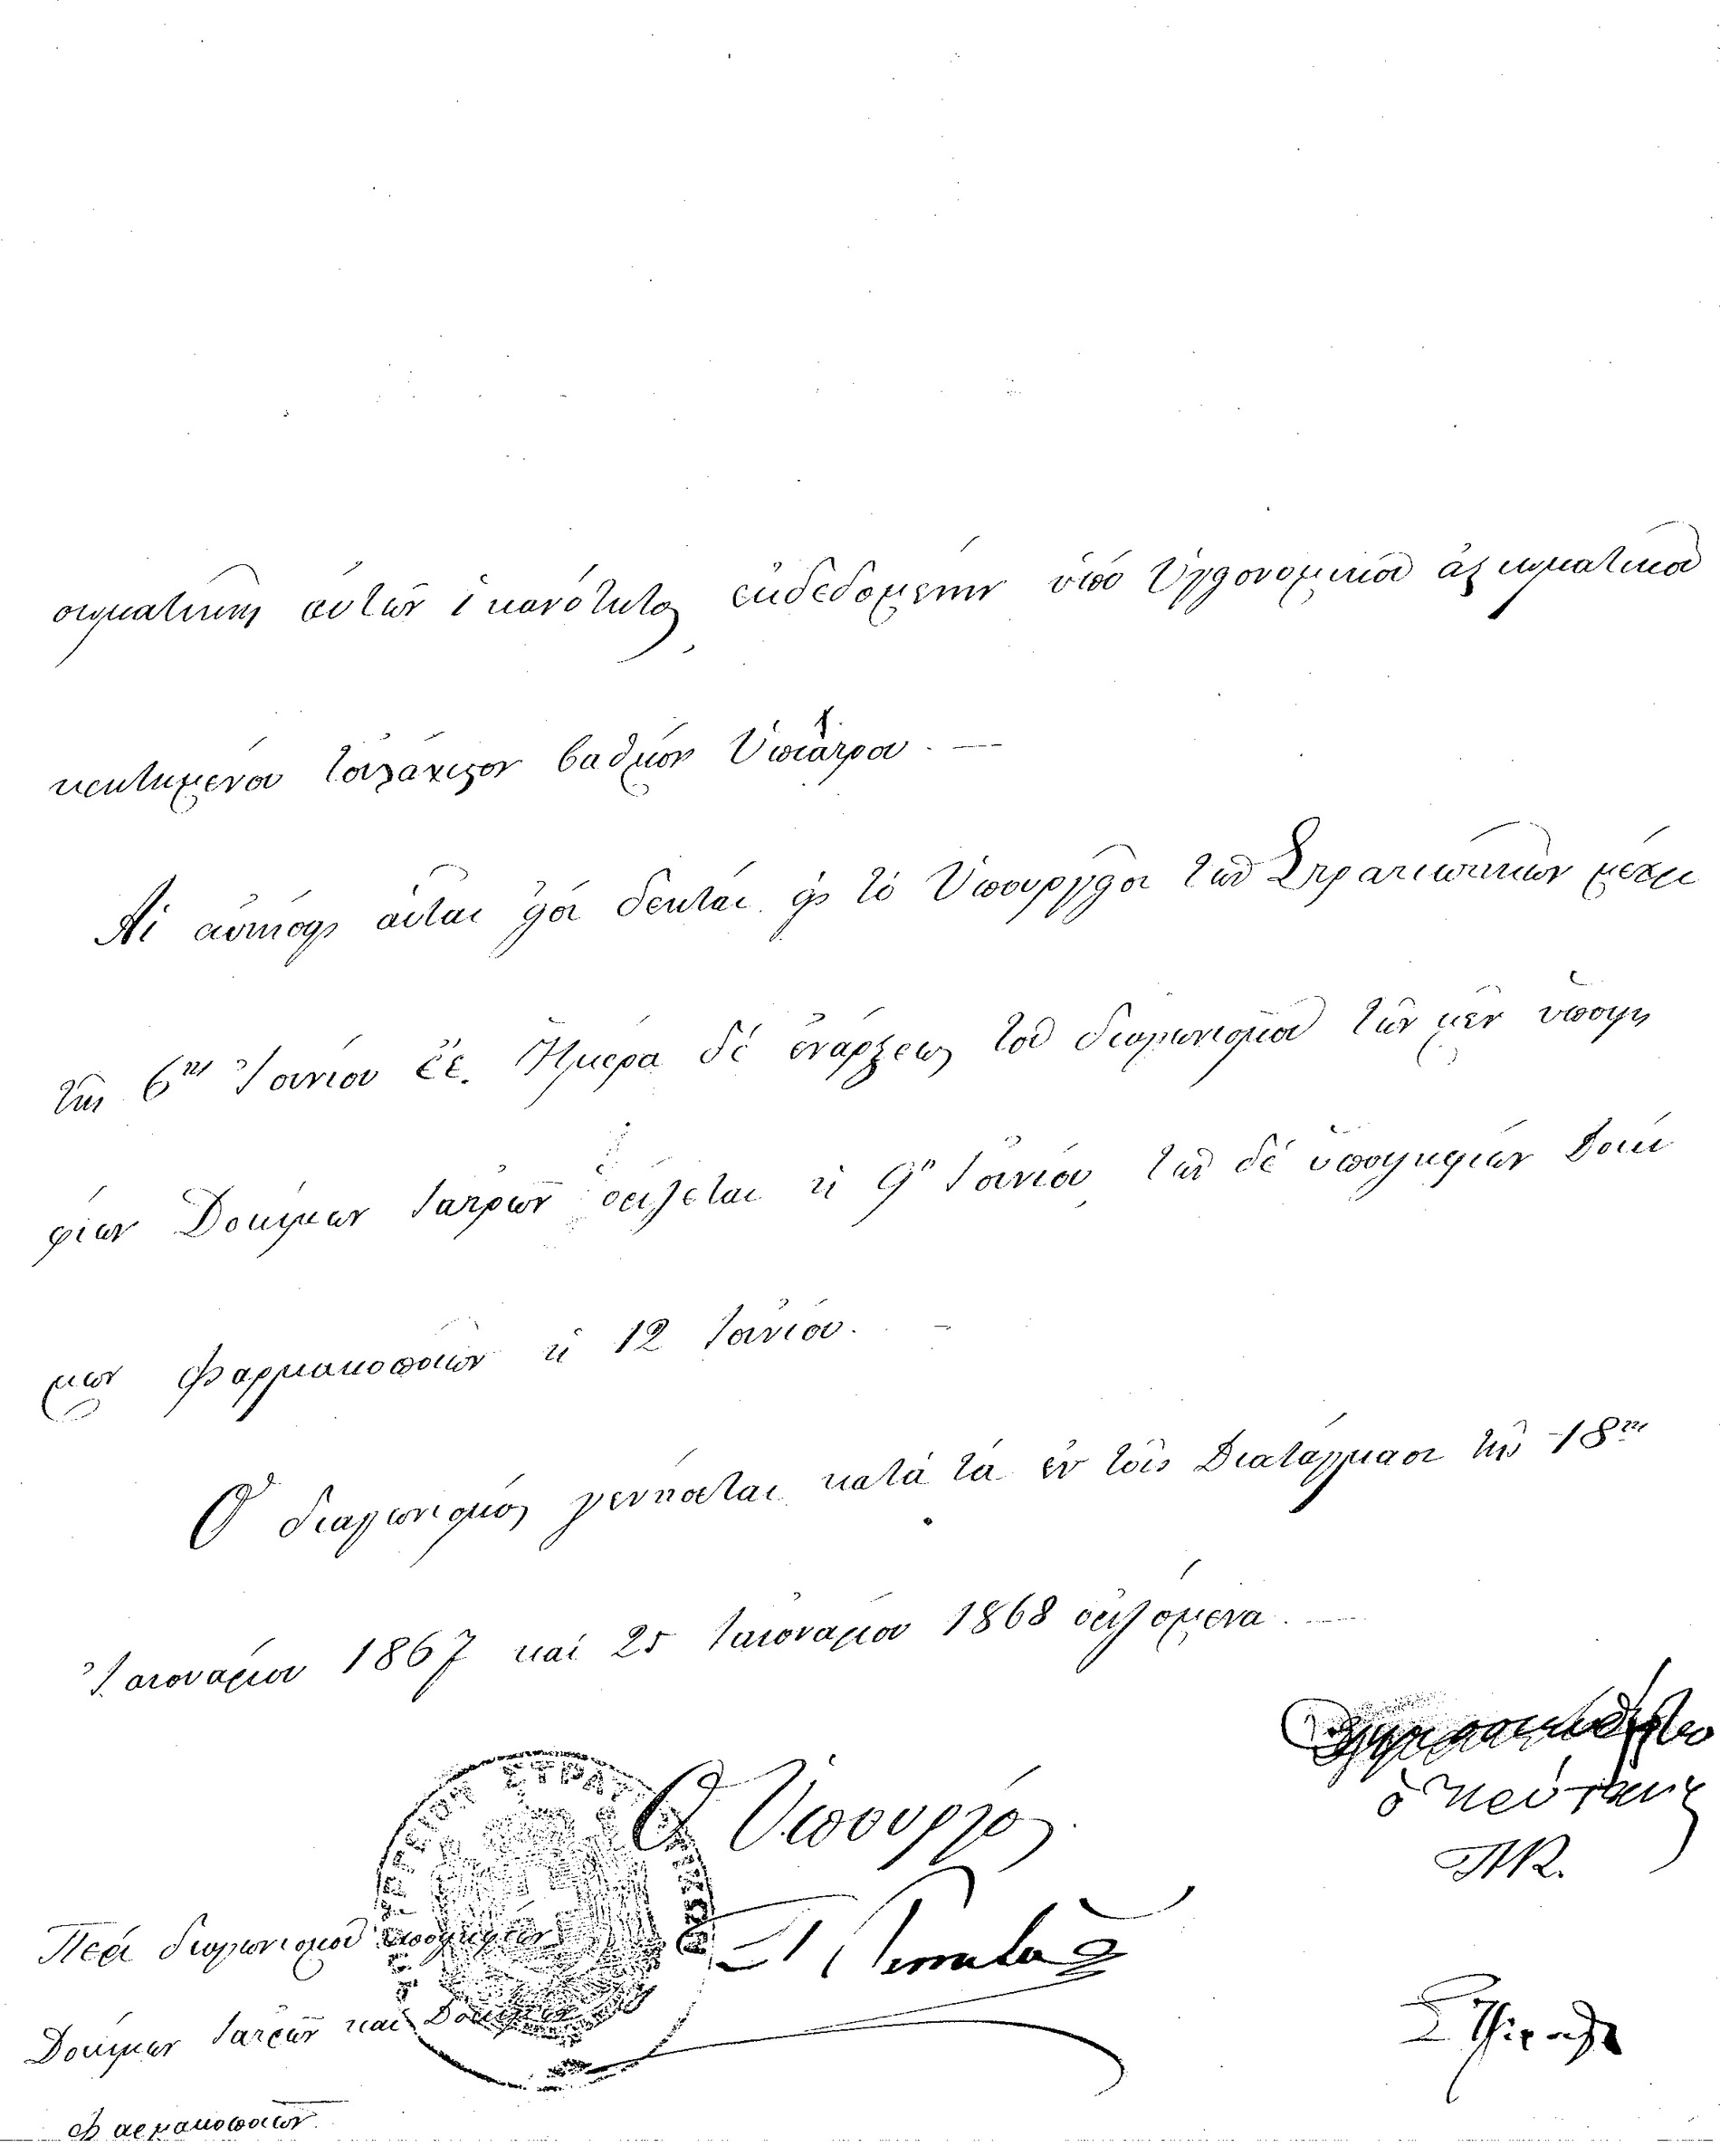 σωματικῆς αὐτῶν ἱκανότητος, ἐκδεδομένην ὑπό Ὑγειονομικοῦ ἀξιωματικοῦ
κεκτημένου τοὐλάχιστον βαθμόν Ὑπιάτρου. —
Αἱ αἰτήσεις αὗται εἶναι δεκταί εἰς τό Ὑπουργεῖον τῶν Στρατιωτικῶν μέχρι
τῆς 6ης Ἰουνίου ἔ.ἔ. Ἡμέρα δέ ἐνάρξεως τοῦ διαγωνισμοῦ τῶν μέν ὑποψη
φίων Δοκίμων Ἰατρῶν ὁρίζεται ἡ 9η Ἰουνίου, τῶν δέ ὑποψηφίων Δοκί
μων Φαρμακοποιῶν ἡ 12 Ἰουνίου. —
Ὁ διαγωνισμός γενήσεται κατά τά ἐν τοῖς Διατάγμασι τῆς 18ης
Ἰανουαρίου 1867 καί 25 Ἰανουαρίου 1868 ὁριζόμενα. —
Ὁ Ὑπουργός
ὁ Πρύτανις
Περί διαγωνισμοῦ ὑποψηφίων
Δοκίμων Ἰατρῶν καί Δοκίμων
Φαρμακοποιῶν.